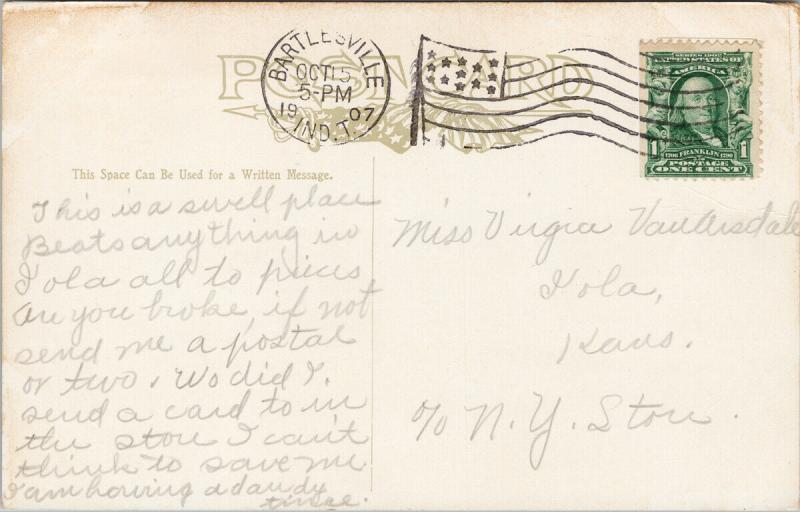 POST CARD
BARTLESVILLE
OCT 15
5-PM
1907
IND. T.
SERIES 1902
UNITED STATES OF
AMERICA
1 1706 FRANKLIN 1790 1
POSTAGE
ONE CENT
This Space Can Be Used for a Written Message.
This is a swell place
Beats anything in
Iola all to pieces
Are you broke, if not
send me a postal
or two. Who did I.
send a card to in
the store I can't
think to save me
I am having a dandy
time.
Miss Virgia Vandersdale
Iola,
Kans.
c/o N.Y. Store.